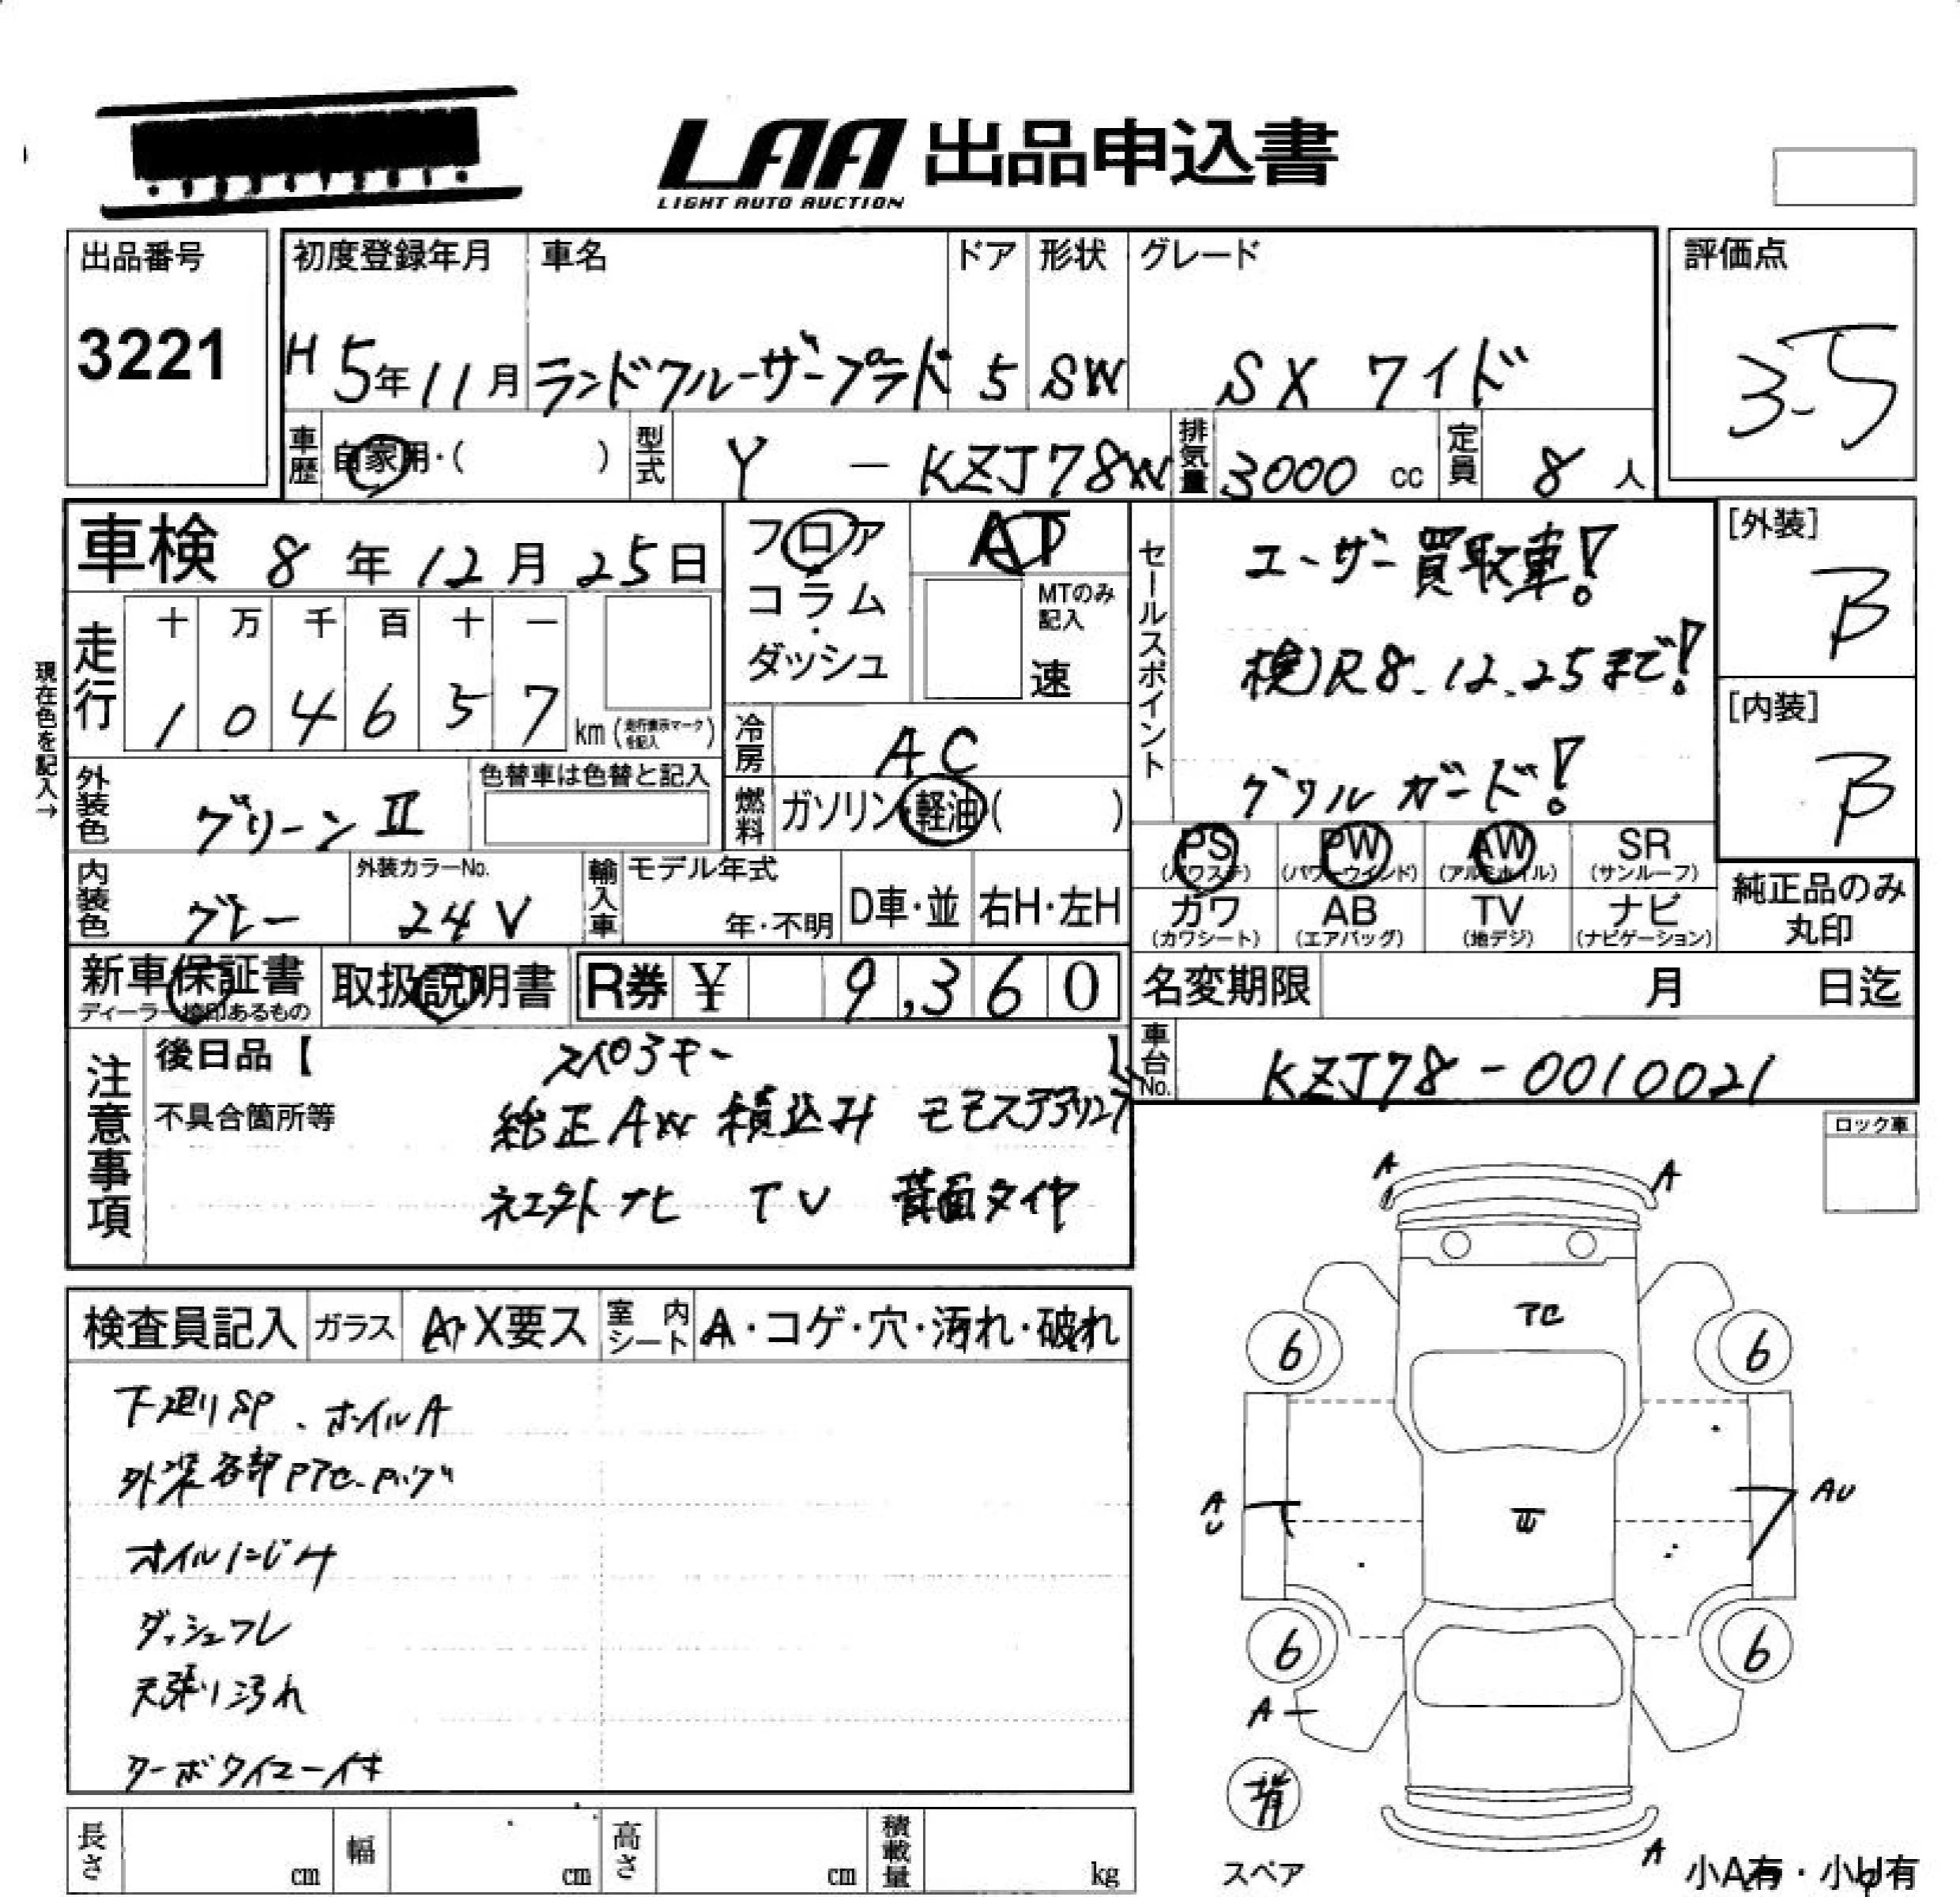 LAA 出品申込書
LIGHT AUTO AUCTION
出品番号
3221
初度登録年月 車名 ドア 形状 グレード
H5年11月 ランドクルーザープラド 5 SW SX ワイド
評価点
3.5
車歴 自家用・( ) 型式 Y - KZJ78W 排気量 3000 cc 定員 8 人
車検 8年12月25日
フロア
コラム・
ダッシュ
AT
MTのみ記入
速
現在色を記入→
走行 十 万 千 百 十 一
1 0 4 6 5 7 km (走行表示マークを記入)
冷房 AC
燃料 ガソリン・軽油( )
外装色 グリーンⅡ
色替車は色替と記入
内装色 グレー
外装カラーNo.
24V
輸入車 モデル年式
年・不明 D車・並 右H・左H
セールスポイント
ユーザー買取車!
検)R8.12.25まで!
グリルガード!
[外装]
B
[内装]
B
PS PW AW SR
(パワステ) (パワーウインド) (アルミホイル) (サンルーフ)
カワ AB TV ナビ
(カワシート) (エアバッグ) (地デジ) (ナビゲーション)
純正品のみ
丸印
新車保証書
ディーラー捺印あるもの
取扱説明書
R券 ¥ 9,360
名変期限 月 日迄
車台No. KZJ78-0010021
注意事項
後日品【 】
不具合箇所等
純正AW 積込み
ナビ TV 背面タイヤ
ロック車
検査員記入 ガラス A・X要ス 室内シート A・コゲ・穴・汚れ・破れ
下廻りSP、ホイルA
外装各部
オイルにじみ
ダッシュワレ
天張り汚れ
ターボタイマー付
A A
6 6
A U
AU
6 6
A
背
スペア
A
小A有・小U有
長さ cm 幅 cm 高さ cm 積載量 kg